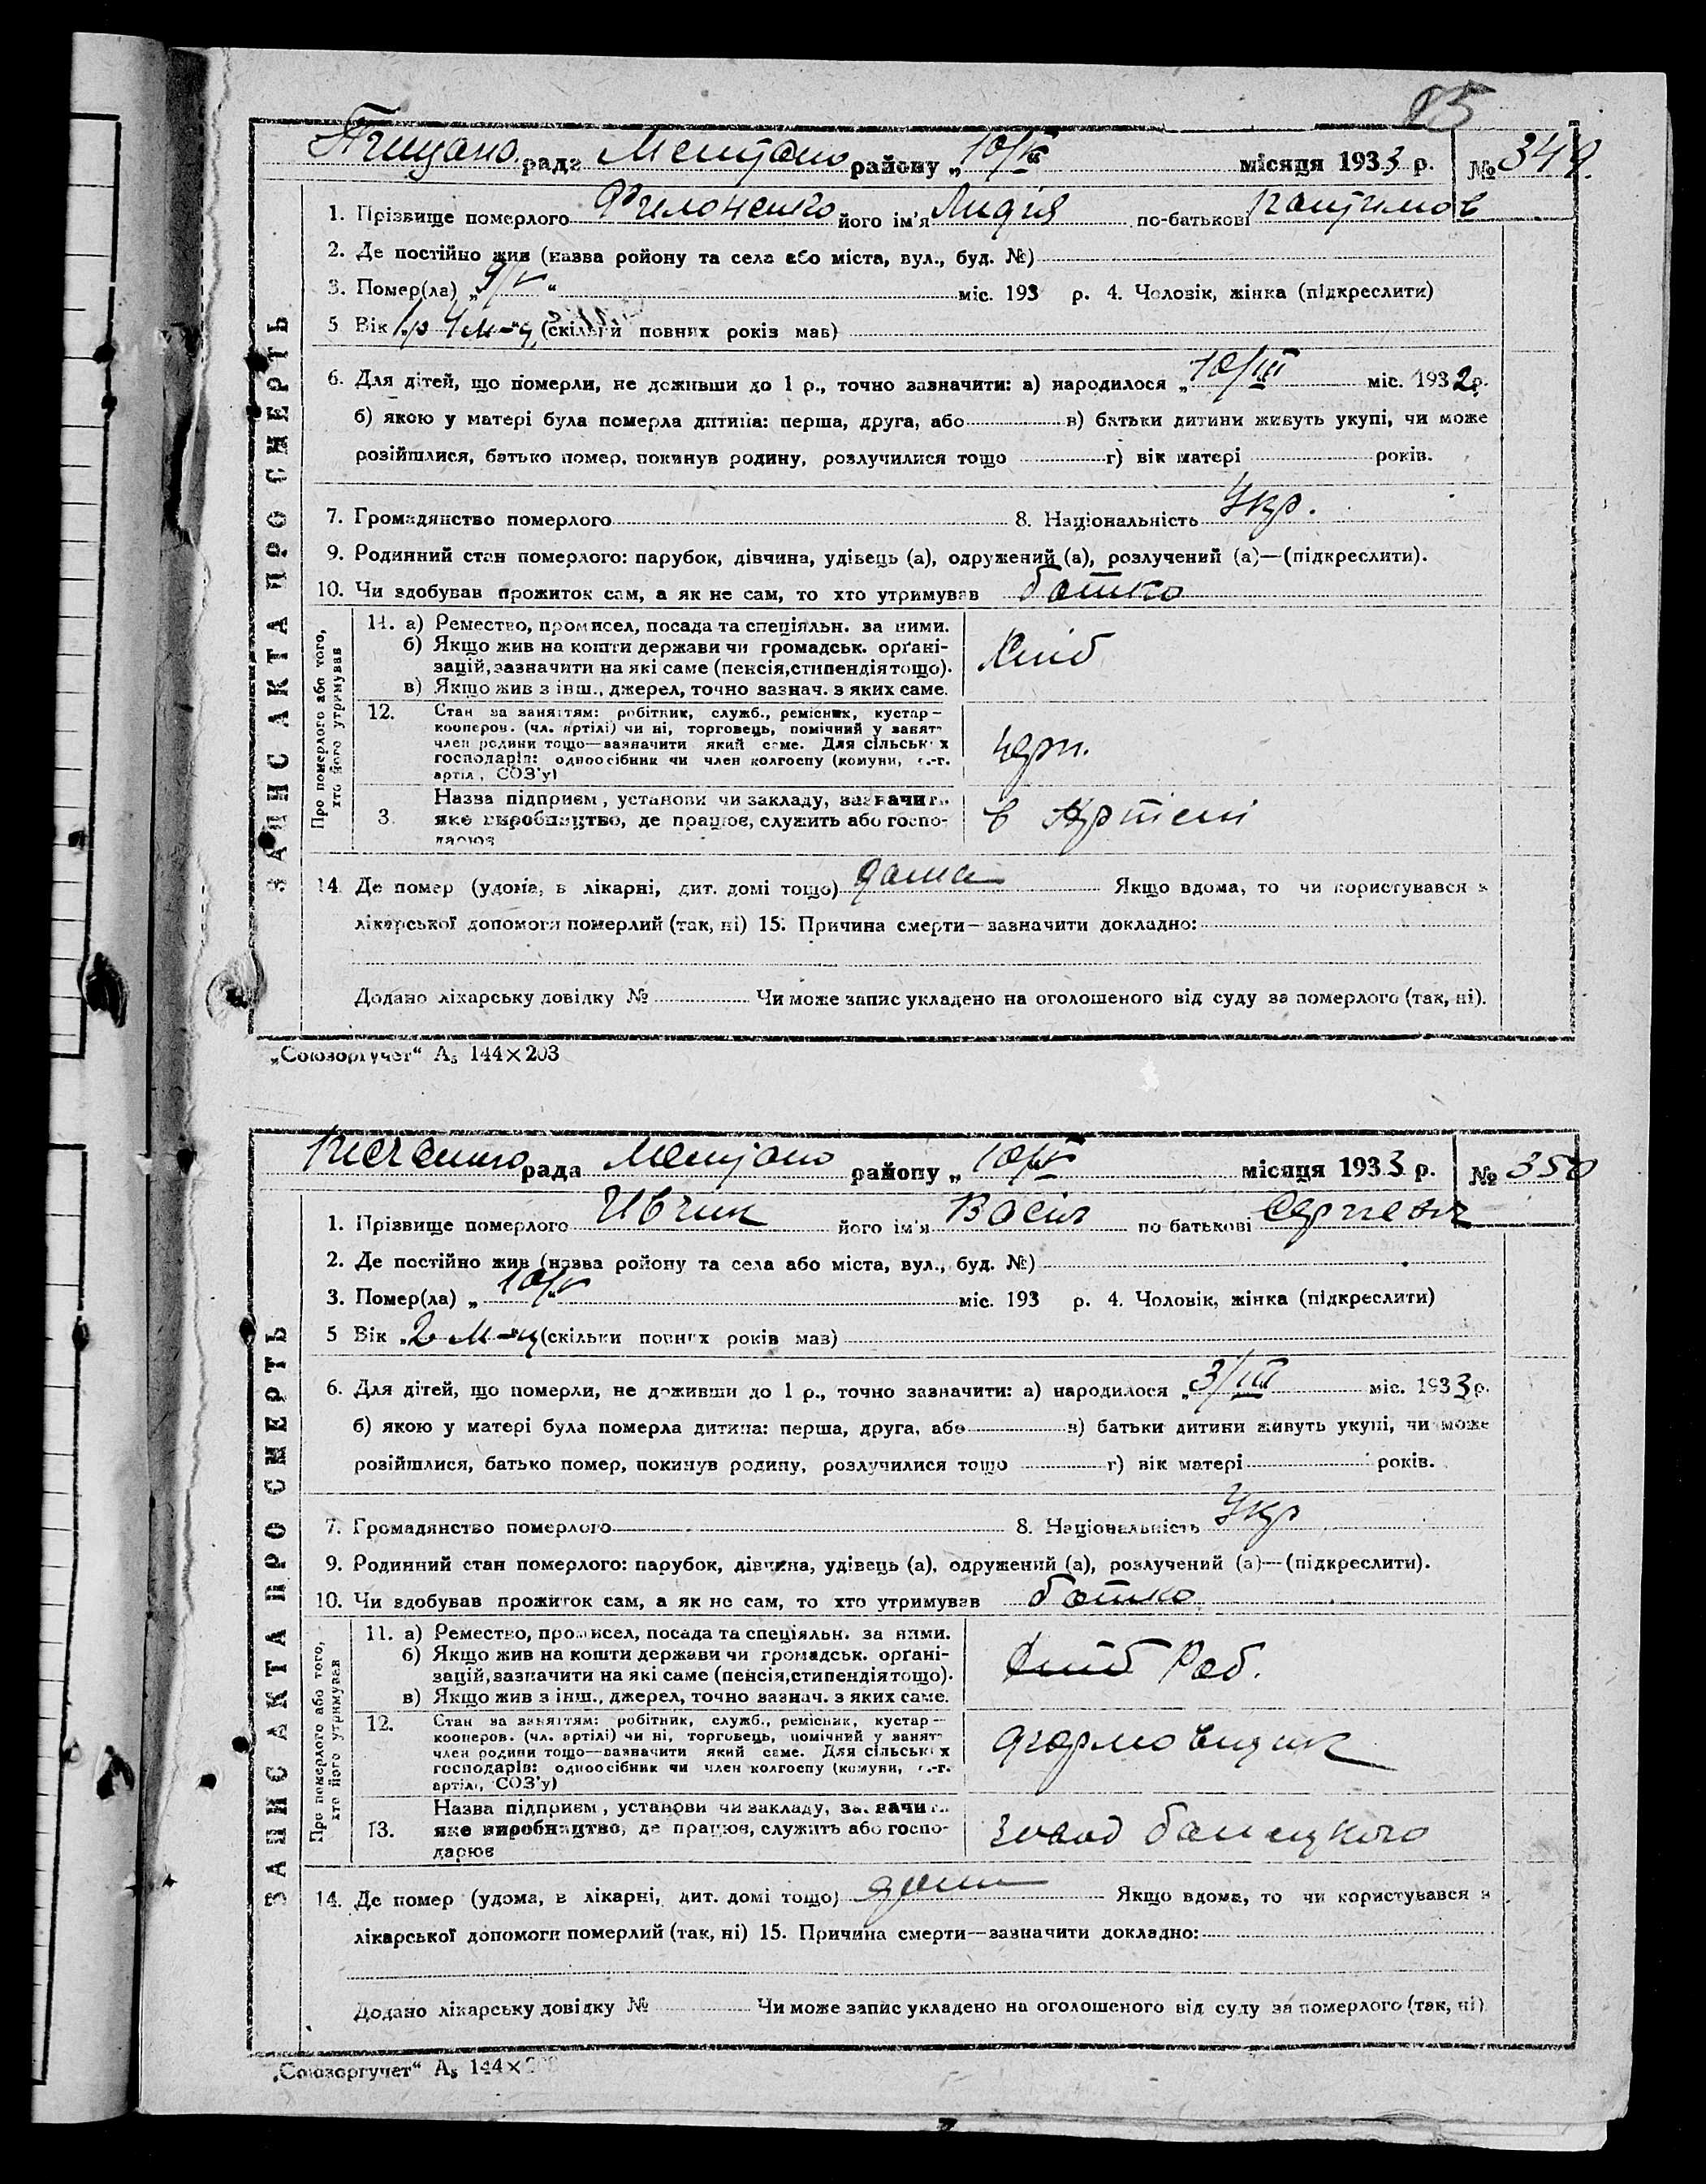 85
рада районy „10/V місяця 1933 р. № 349
1. Прізвище померлого його ім'я Лидія по-батькові
2. Де постійно жив (назва ройону та села або міста, вул., буд. №)
3. Помер(ла) „9/V“ міс. 193 р. 4. Чоловік, жінка (підкреслити)
5 Вік 1 р 4 м-ц (скільки повних років мав)
6. Для дітей, що померли, не доживши до 1 р., точно зазначити: а) народилося „10/III міс. 1932 р.
б) якою у матері була померла дитина: перша, друга, або в) батьки дитини живуть укупі, чи може
розійшлися, батько помер, покинув родину, розлучилися тощо г) вік матері років.
7. Громадянство померлого 8. Національність Укр.
9. Родинний стан померлого: парубок, дівчина, удівець (а), одружений (а), розлучений (а)—(підкреслити).
10. Чи здобував прожиток сам, а як не сам, то хто утримував батко
ЗАПИС АКТА ПРО СМЕРТЬ
Про померлого або того,
хто його утримував
11. а) Ремество, промисел, посада та спеціяльн. за ними.
б) Якщо жив на кошти держави чи громадськ. орґані-
зацій, зазначити на які саме (пенсія, стипендія тощо).
в) Якщо жив з інш., джерел, точно зазнач. з яких саме.
Хліб
12. Стан за заняттям: робітник, служб., ремісник, кустар—
кооперов. (чл. артілі) чи ні, торговець, помічний у занят-
член родини тощо—зазначити який саме. Для сільських
господарів: одноосібник чи член колгоспу (комуни, с.-г.
артіл, СОЗ'у)
3. Назва підприєм, установи чи закладу, зазначити
яке виробництво, де працює, служить або госпо-
дарює
в Артілі
14. Де помер (удома, в лікарні, дит. домі тощо) дома Якщо вдома, то чи користувався з
лікарської допомоги померлий (так, ні) 15. Причина смерти—зазначити докладно:
Додано лікарську довідку № Чи може запис укладено на оголошеного від суду за померлого (так, ні).
„Союзоргучет“ А₅ 144×203
рада району „10/V місяця 1933 р. № 350
1. Прізвище померлого Ивчик його ім'я Васіл по батькові
2. Де постійно жив (назва ройону та села або міста, вул., буд. №)
3. Помер(ла) „10/V“ міс. 193 р. 4. Чоловік, жінка (підкреслити)
5 Вік „2 м-ц (скільки повних років мав)
6. Для дітей, що померли, не доживши до 1 р., точно зазначити: а) народилося „3/III міс. 1933 р.
б) якою у матері була померла дитина: перша, друга, або в) батьки дитини живуть укупі, чи може
розійшлися, батько помер, покинув родину, розлучилися тощо г) вік матері років.
7. Громадянство померлого 8. Національність Укр
9. Родинний стан померлого: парубок, дівчина, удівець (а), одружений (а), розлучений (а)—(підкреслити).
10. Чи здобував прожиток сам, а як не сам, то хто утримував батко
ЗАПИС АКТА ПРО СМЕРТЬ
Про померлого або того,
хто його утримував
11. а) Ремество, промисел, посада та спеціяльн. за ними.
б) Якщо жив на кошти держави чи громадськ. орґані-
зацій, зазначити на які саме (пенсія, стипендія тощо).
в) Якщо жив з інш., джерел, точно зазнач. з яких саме.
Хліб Роб.
12. Стан за заняттям: робітник, служб., ремісник, кустар—
кооперов. (чл. артілі) чи ні, торговець, помічний у занят-
член родини тощо—зазначити який саме. Для сільських
господарів: одноосібник чи член колгоспу (комуни, с.-г.
артіл, СОЗ'у)
13. Назва підприєм, установи чи закладу, зазначити
яке виробництво, де працює, служить або госпо-
дарює
14. Де помер (удома, в лікарні, дит. домі тощо) дома Якщо вдома, то чи користувався з
лікарської допомоги померлий (так, ні) 15. Причина смерти—зазначити докладно:
Додано лікарську довідку № Чи може запис укладено на оголошеного від суду за померлого (так, ні)
„Союзоргучет“ А₅ 144×